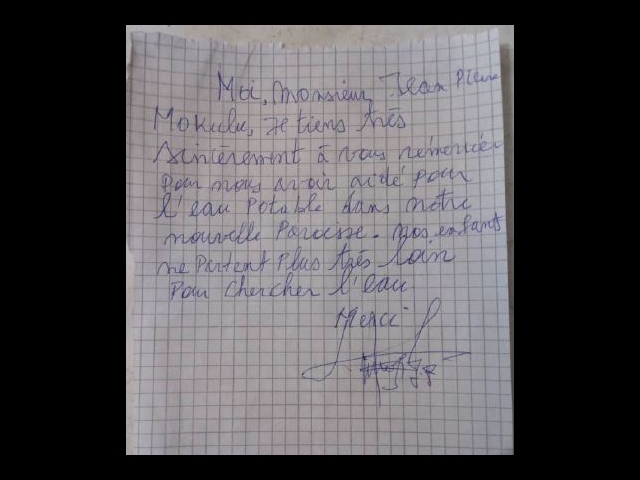 Moi, Monsieur, Jean Pierre
Mokulu, Je tiens très
sincèrement à vous rémercier
Pour nous avoir aidé pour
l'eau Potable dans notre
nouvelle Paroisse. Nos enfants
ne Partent Plus très loin
Pour chercher l'eau
Merci